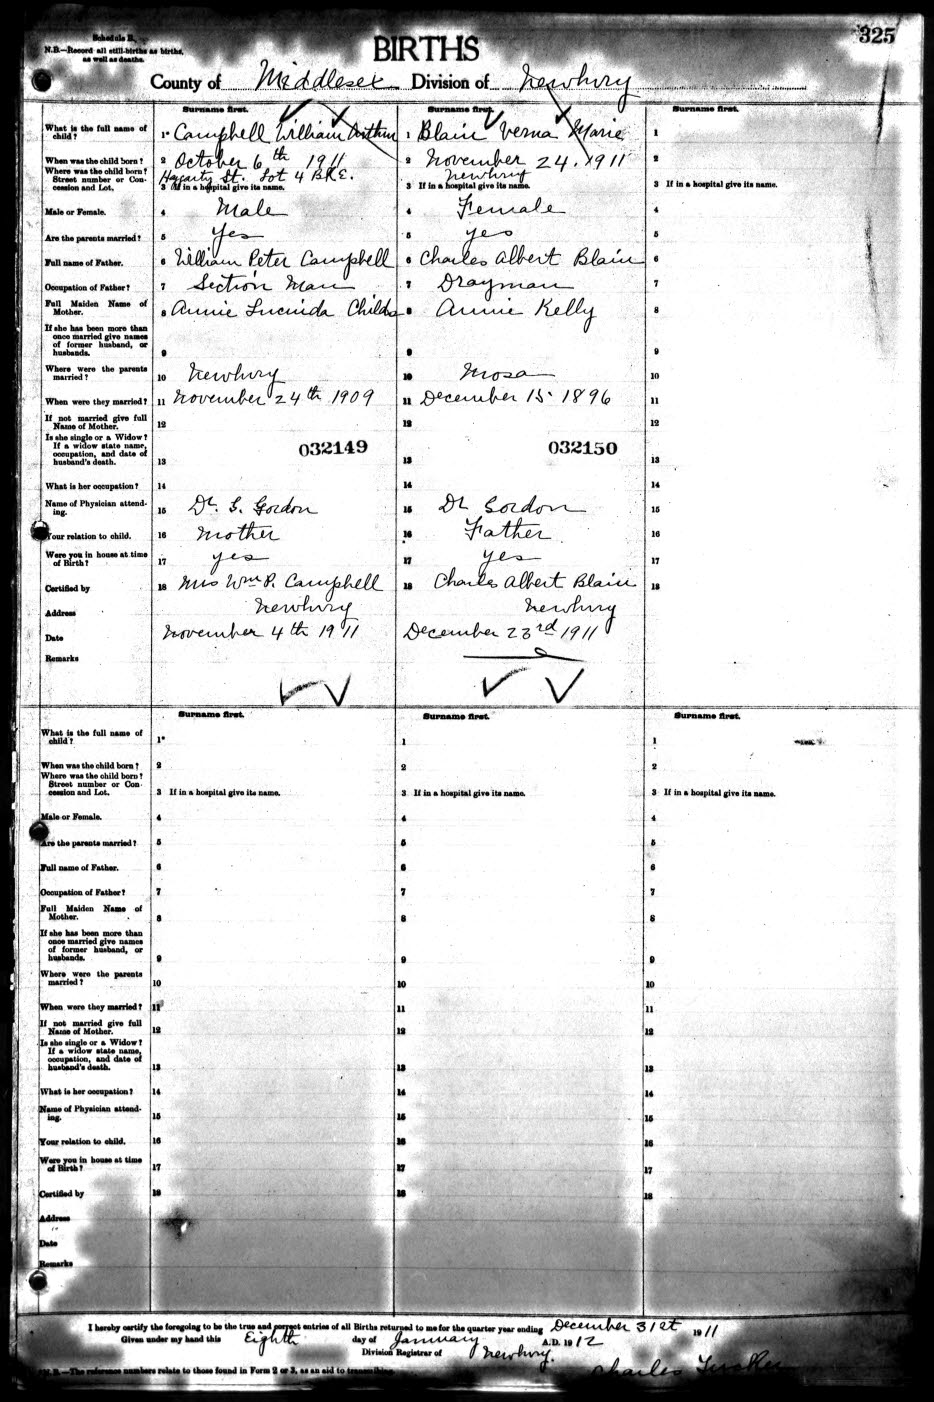 Schedule B.
N.B.—Record all still-births as births,
as well as deaths.
BIRTHS
325
County of Middlesex Division of Newbury
Surname first. Surname first. Surname first.
What is the full name of child? 1* Campbell William Arthur 1 Blain Verna Marie 1
When was the child born? 2 October 6th 1911 2 November 24. 1911 2
Where was the child born? Street number or Concession and Lot. Hagarty St. Lot 4 B.R.E. Newbury
3 If in a hospital give its name. 3 If in a hospital give its name. 3 If in a hospital give its name.
Male or Female. 4 Male 4 Female 4
Are the parents married? 5 Yes 5 yes 5
Full name of Father. 6 William Peter Campbell 6 Charles Albert Blain 6
Occupation of Father? 7 Section Man 7 Drayman 7
Full Maiden Name of Mother. 8 Annie Lucinda Childs 8 Annie Kelly 8
If she has been more than once married give names of former husband, or husbands. 9 9 9
Where were the parents married? 10 Newbury 10 Mosa 10
When were they married? 11 November 24th 1909 11 December 15. 1896 11
If not married give full Name of Mother. 12 12 12
Is she single or a Widow? If a widow state name, occupation, and date of husband's death. 13 032149 13 032150 13
What is her occupation? 14 14
Name of Physician attending. 15 Dr. G. Gordon 15 Dr Gordon 15
Your relation to child. 16 Mother 16 Father 16
Were you in house at time of Birth? 17 yes 17 yes 17
Certified by 18 Mrs Wm P. Campbell 18 Charles Albert Blain 18
Address Newbury Newbury
Date November 4th 1911 December 23rd 1911
Remarks
Surname first. Surname first. Surname first.
What is the full name of child? 1* 1 1
When was the child born? 2 2 2
Where was the child born? Street number or Concession and Lot. 3 If in a hospital give its name. 3 If in a hospital give its name. 3 If in a hospital give its name.
Male or Female. 4 4 4
Are the parents married? 5 5 5
Full name of Father. 6 6 6
Occupation of Father? 7 7 7
Full Maiden Name of Mother. 8 8 8
If she has been more than once married give names of former husband, or husbands. 9 9 9
Where were the parents married? 10 10 10
When were they married? 11 11 11
If not married give full Name of Mother. 12 12 12
Is she single or a Widow? If a widow state name, occupation, and date of husband's death. 13 13 13
What is her occupation? 14 14 14
Name of Physician attending. 15 15 15
Your relation to child. 16 16 16
Were you in house at time of Birth? 17 17 17
Certified by 18 18 18
Address
Date
Remarks
I hereby certify the foregoing to be the true and correct entries of all Births returned to me for the quarter year ending December 31st 1911
Given under my hand this Eighth day of January A.D. 1912
Division Registrar of Newbury.
Charles Tucker
N.B.—The reference numbers relate to those found in Form 2 or 3, as an aid to transcribing.